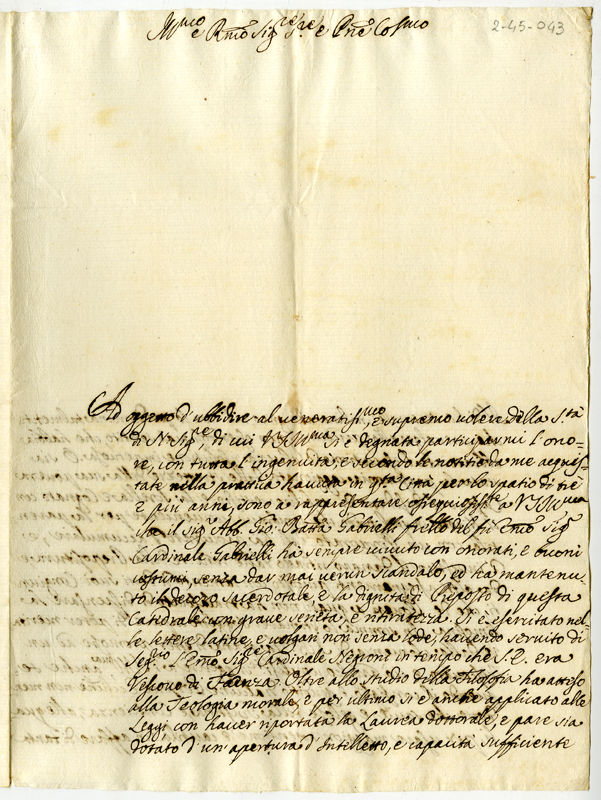 2-45-043
Ill.mo e Rmo Sig.re Sig.re e Pne Cosmo
Ad oggetto d'ubbidire al veneratiss.mo, e supremo volere della S.ta
di N. Sig.re, di cui V.S. Ill.ma si è degnata participarmi l'ono-
re, con tutta l'ingenuità, e secondo le notitie da me acquis-
tate nella prattica havuta in q.ta Città per lo spatio di trè
e più anni, sono à rappresentare ossequiosiss.te a V.S. Ill.ma
che il Sig.r Abb. Gio: Batta Gabrielli fr̃llo del fù Emo Sig.r
Cardinale Gabrielli ha sempre vivuto con onorati, e buoni
costumi, senza dar mai verun scandalo, ed ha mantenu-
to il decoro sacerdotale, e la dignità di Preposto di questa
Catedrale con grave serietà, e ritiratezza. Si è esercitato nel-
le lettere latine, e volgari non senza lode, havendo servito di
Seg.rio l'Emo Sig.re Cardinale Negroni in tempo che S.E. era
Vescovo di Faenza. Oltre allo studio della Filosofia ha atteso
alla Teologia morale, e per ultimo si è anche applicato alle
Leggi, con haver riportata la Laurea dottorale, e pare sia
dotato d'un'apertura d'Intelletto, e capacità sufficiente